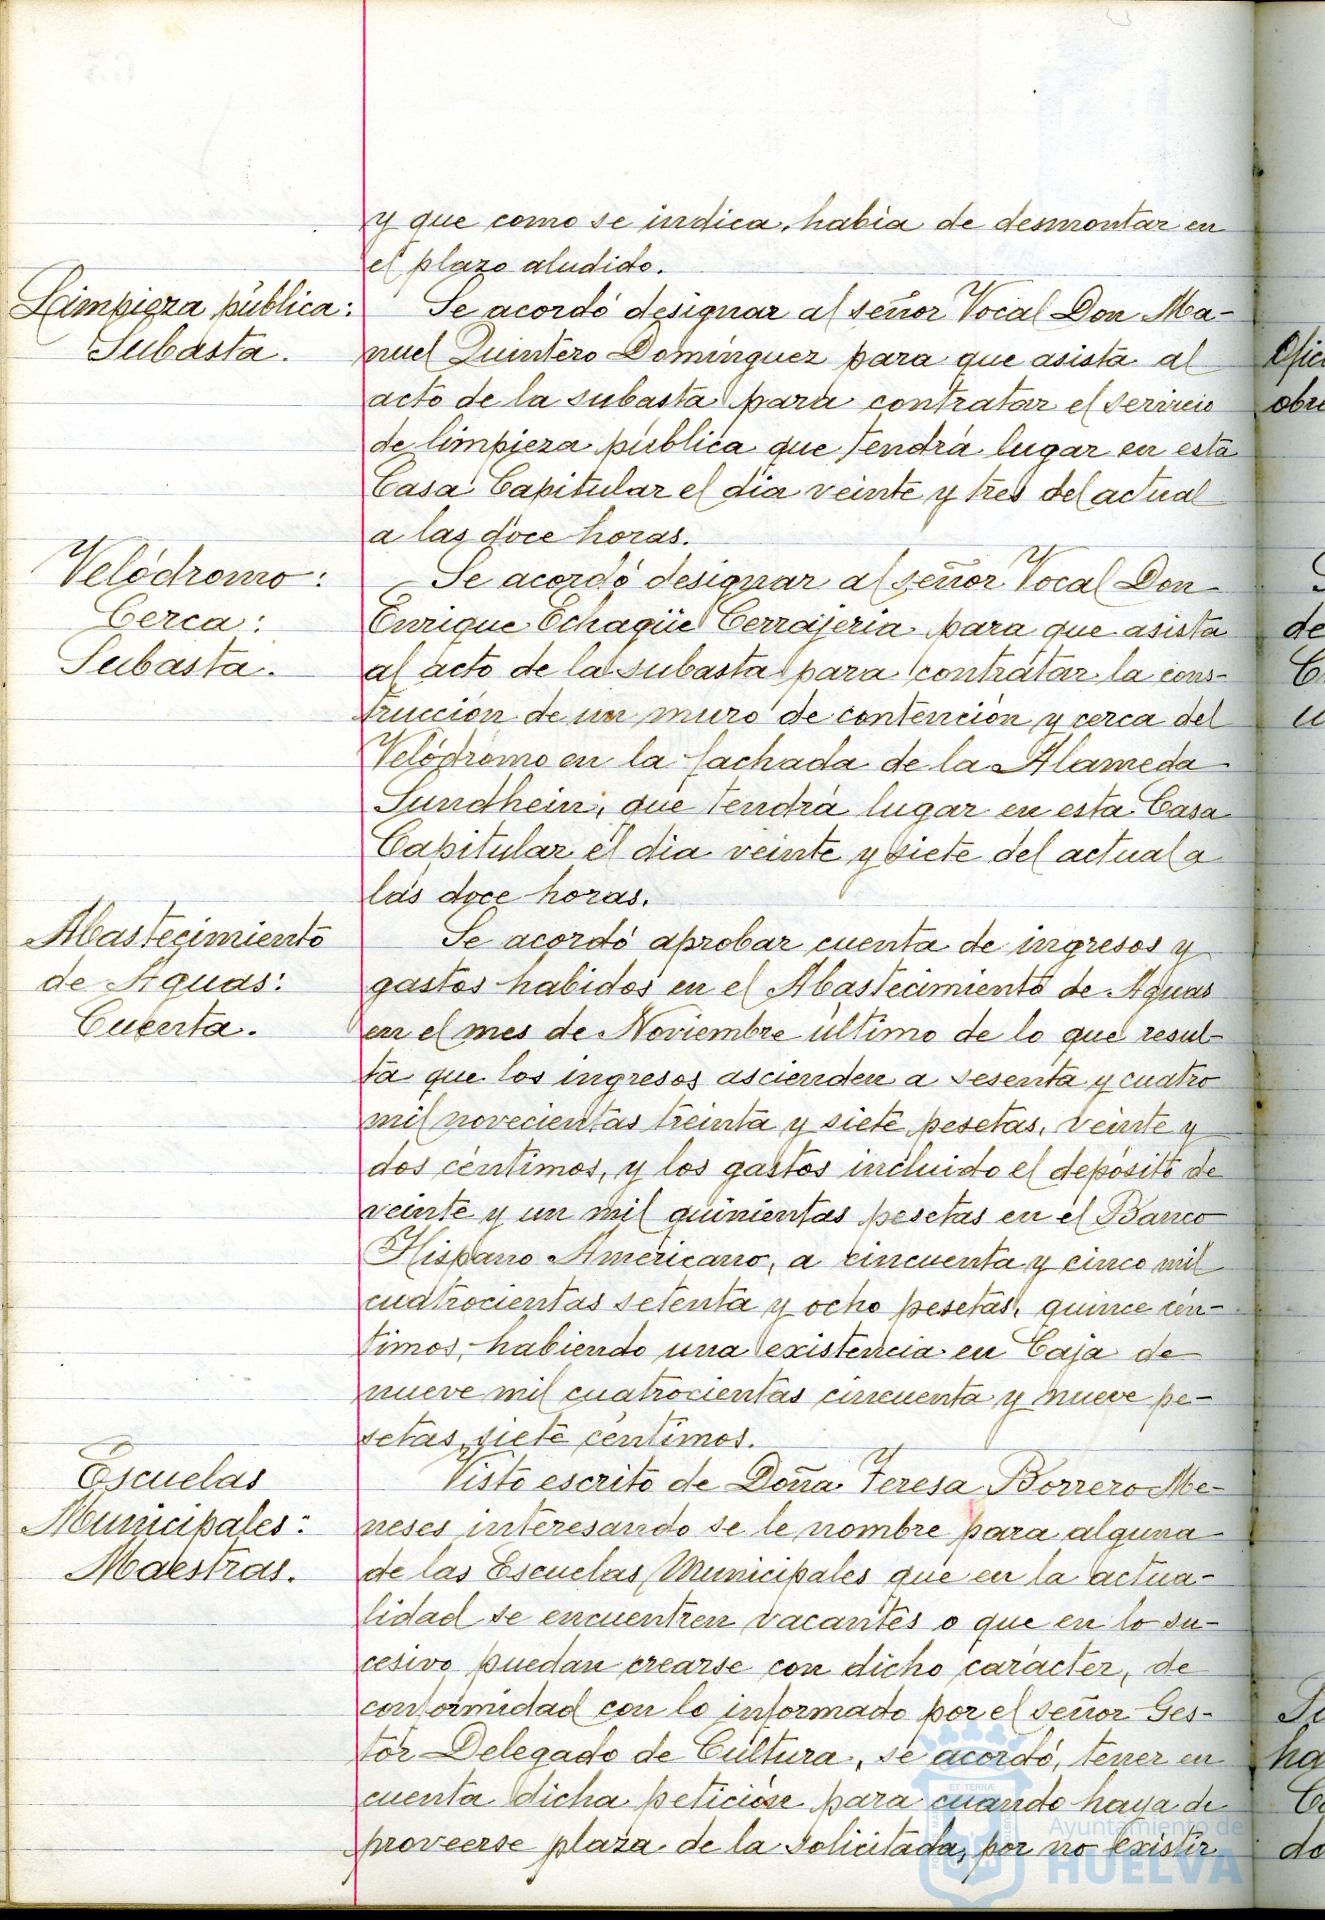 y que como se indica, había de desmontar en
el plazo aludido.
Limpieza pública:
Subasta.
Se acordó designar al señor Vocal Don Ma-
nuel Quintero Domínguez para que asista al
acto de la subasta para contratar el servicio
de limpieza pública que tendrá lugar en esta
Casa Capitular el dia veinte y tres del actual
a las doce horas.
Velódromo:
Cerca:
Subasta.
Se acordó designar al señor Vocal Don
Enrique Echagüe Cerrajeria para que asista
al acto de la subasta para contratar la cons-
trucción de un muro de contención y cerca del
Velódromo en la fachada de la Alameda
Sundhein, que tendrá lugar en esta Casa
Capitular el dia veinte y siete del actual a
las doce horas.
Abastecimiento
de Aguas:
Cuenta.
Se acordó aprobar cuenta de ingresos y
gastos habidos en el Abastecimiento de Aguas
en el mes de Noviembre último de lo que resul-
ta que los ingresos ascienden a sesenta y cuatro
mil novecientas treinta y siete pesetas, veinte y
dos céntimos, y los gastos incluido el depósito de
veinte y un mil quinientas pesetas en el Banco
Hispano Americano, a cincuenta y cinco mil
cuatrocientas setenta y ocho pesetas, quince cén-
timos, habiendo una existencia en Caja de
nueve mil cuatrocientas cincuenta y nueve pe-
setas, siete céntimos.
Escuelas
Municipales:
Maestras.
Visto escrito de Doña Teresa Borrero Me-
neses interesando se le nombre para alguna
de las Escuelas Municipales que en la actua-
lidad se encuentren vacantes o que en lo su-
cesivo puedan crearse con dicho carácter, de
conformidad con lo informado por el señor Ges-
tor Delegado de Cultura, se acordó, tener en
cuenta dicha petición para cuando haya de
proveerse plaza de la solicitada, por no existir
Ayuntamiento de
HUELVA